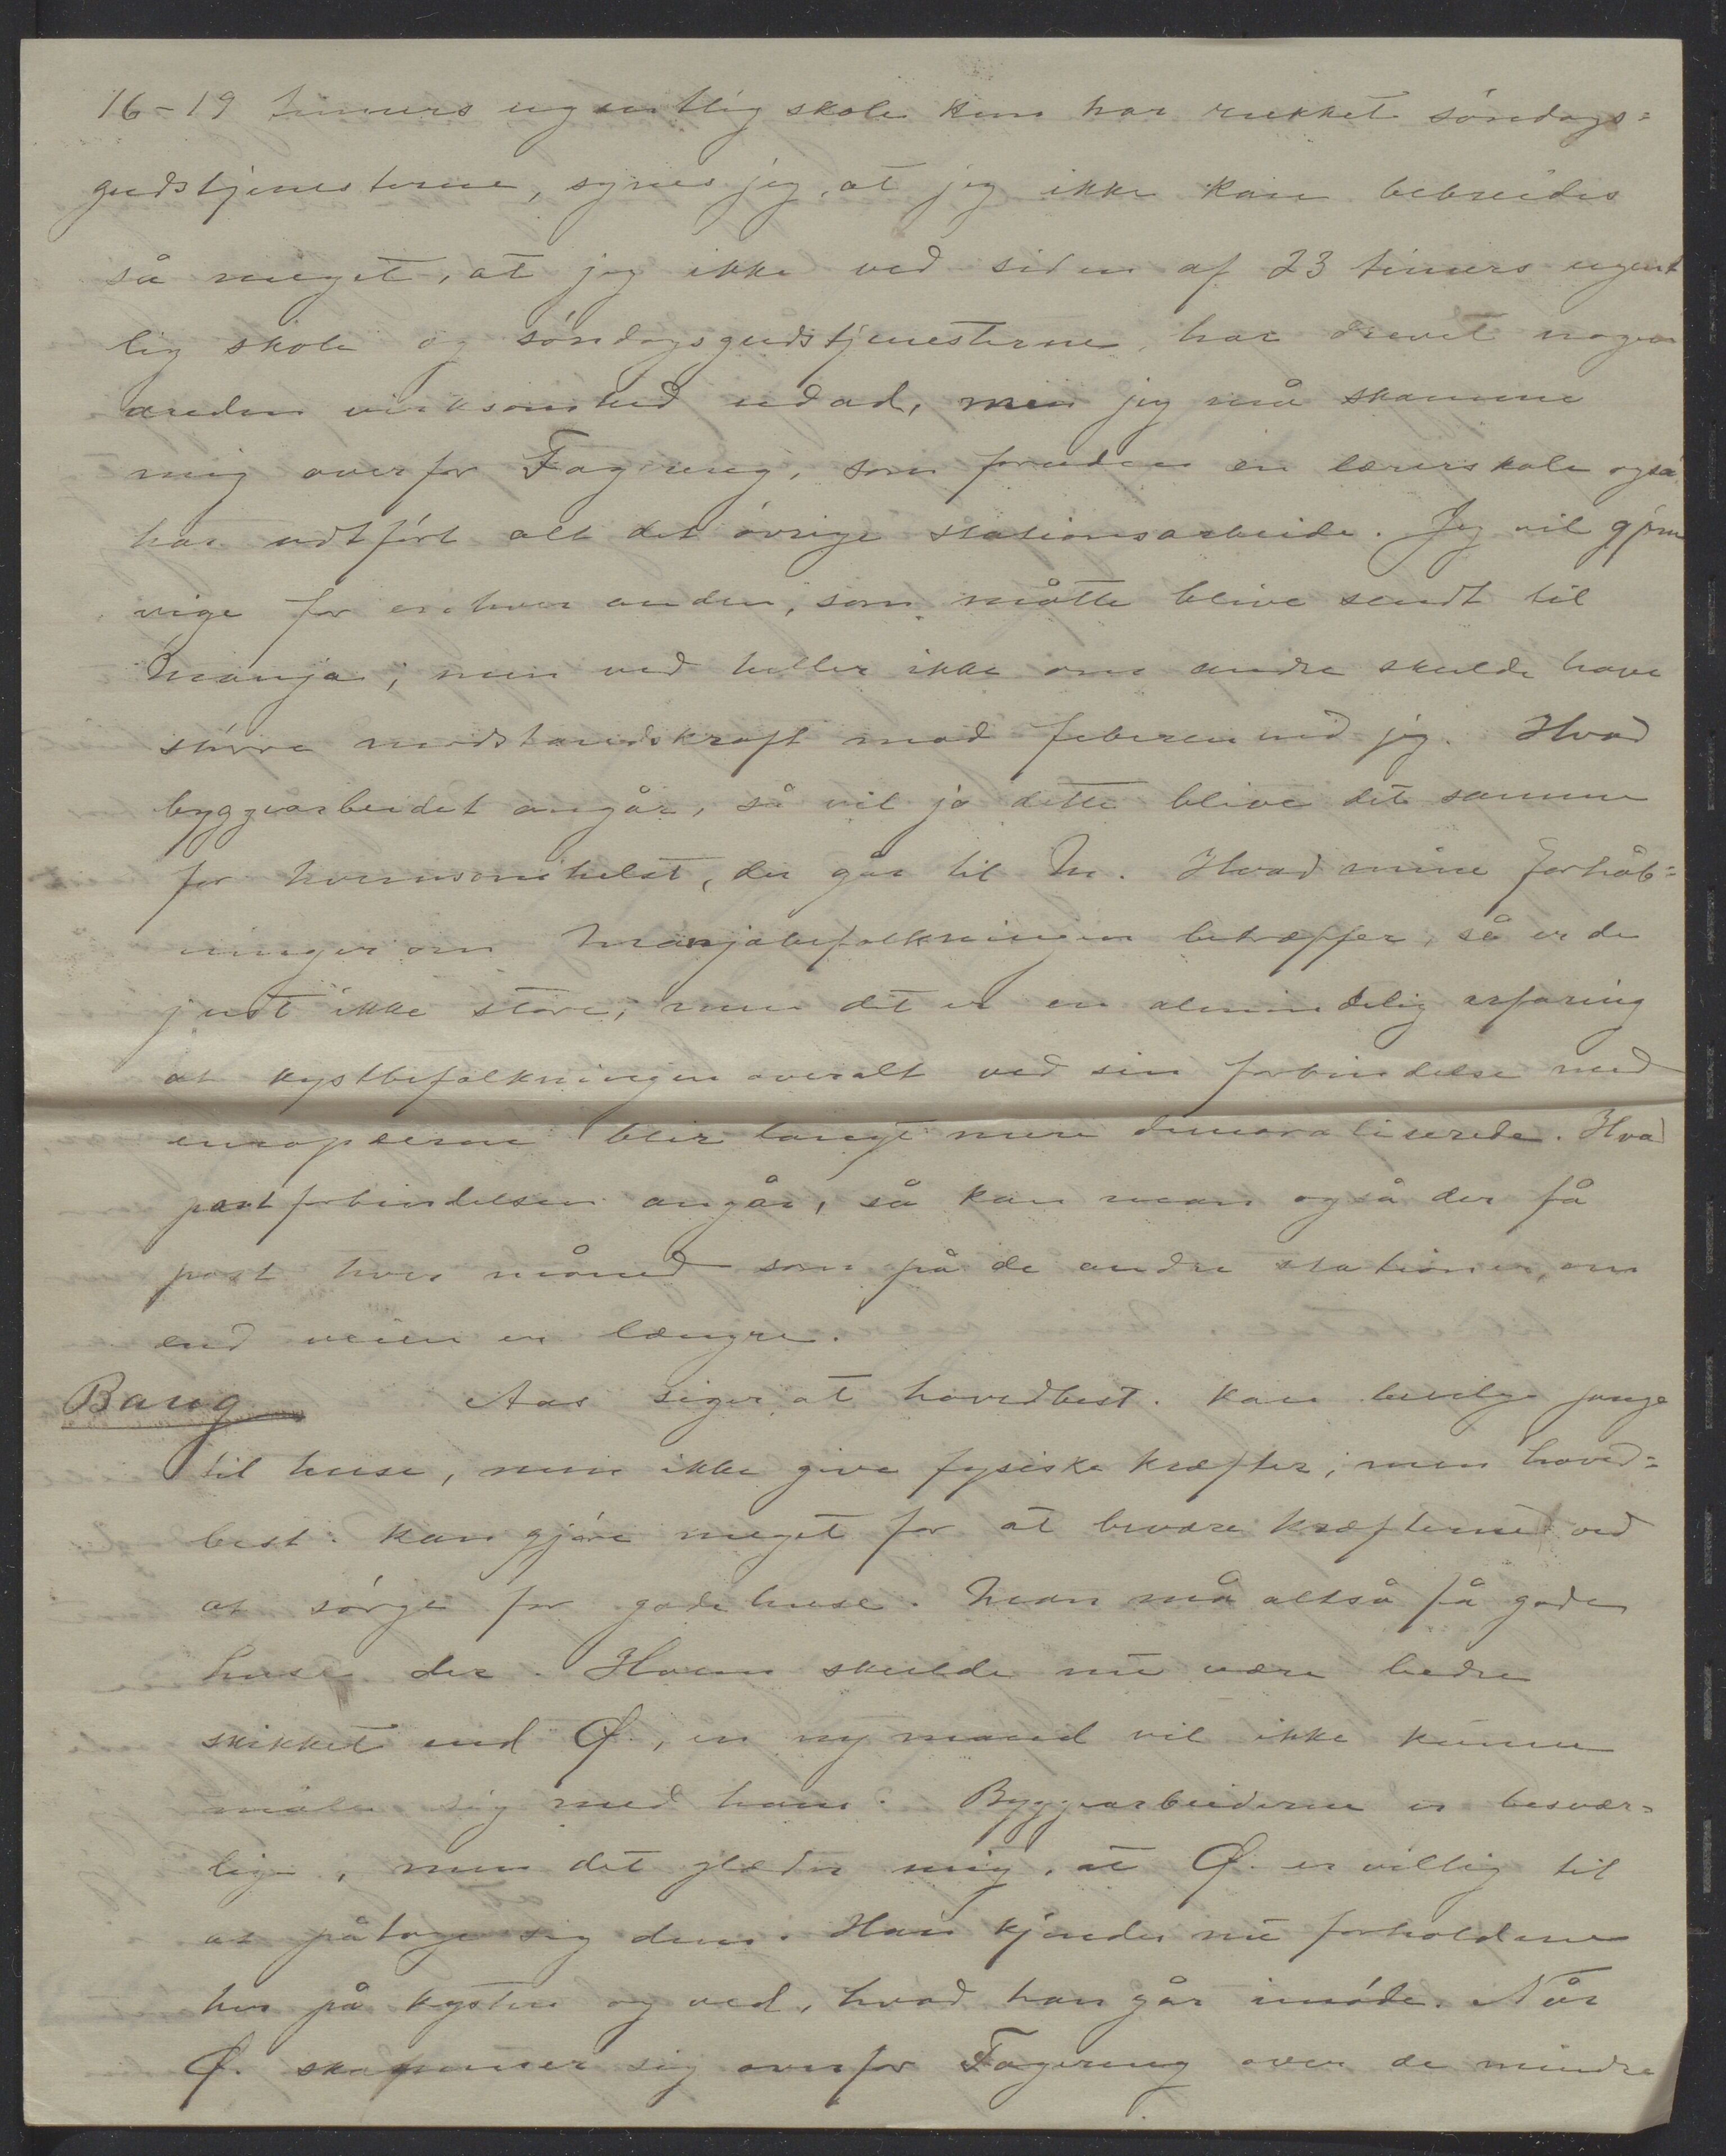 16-19 timers ugentlig skole kun har rukket söndags=
gudstjenesterne, synes jeg, at jeg ikke kan bebreides
så meget, at jeg ikke ved siden af 23 timers ugent
lig skole og söndagsgudstjenesterne, har drevet nogen
anden virksomhed udad, men jeg må skamme
mig overfor Fagereng, som foruden en lærerskole også
har udfört alt det övrige stationsarbeide. Jeg vil gjerne
vige for enhver anden, som måtte blive sendt til
Manja; men ved heller ikke om andre skulde have
större modstandskraft mod feberen end jeg. Hvad
byggearbeidet angår, så vil jo dette blive det samme
for hvemsomhelst, der går til M. Hvad mine forhåb=
ninger om Manjabefolkningen betræffer, så er de
just ikke store; men det er en almindelig erfaring
at kystbefolkningen overalt ved sin forbindelse med
europæerne blir langt mere demoraliserede. Hvad
postforbindelsen angår, så kan man også der få
post hver måned som på de andre stationer, om
end veien er længre.
Baug Aas siger at hovedbest. kan bevilge penge
til huse, men ikke give fysiske kræfter; men hoved=
best. kan gjöre meget for at bevare kræfterne ved
at sörge for gode huse. Man må altså få gode
huse der. Hvem skulde nu være bedre
skikket end Ø., en ny mand vil ikke kunne
måle sig med ham. Byggearbeiderne er besvær=
lige, men det glæder mig, at Ø. er villig til
at påtage sig dem. Han kjender nu forholdene
her på kysten og ved, hvad han går imöde. Når
Ø. skammer sig overfor Fagereng over de mindre